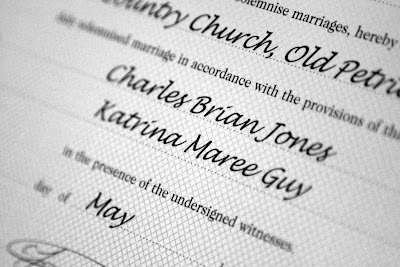 solemnise marriages, hereby
Country Church, Old Petrie
solemnised marriage in accordance with the provisions of
Charles Brian Jones
Katrina Maree Guy
in the presence of the undersigned witnesses.
day of May